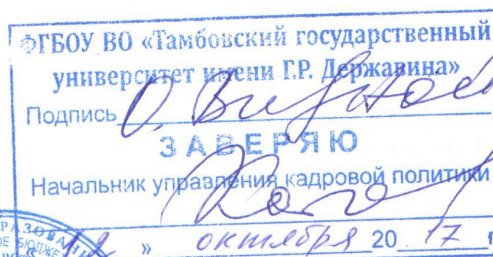 ФГБОУ ВО «Тамбовский государственный
университет имени Г.Р. Державина»
Подпись
ЗАВЕРЯЮ
Начальник управления кадровой политики
« 12 » октября 20 17 г